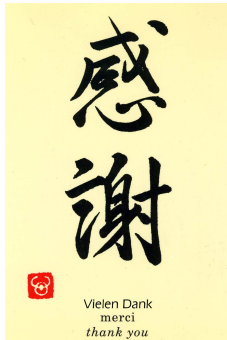 感
謝
Vielen Dank
merci
thank you